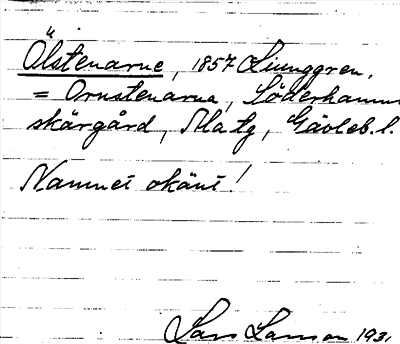 Ölstenarne, 1857 Ljunggren,
= Ornstenarna, Söderhamns
skärgård, Gävleb. l.
Namnet okänt!
Lars Larsson 1931